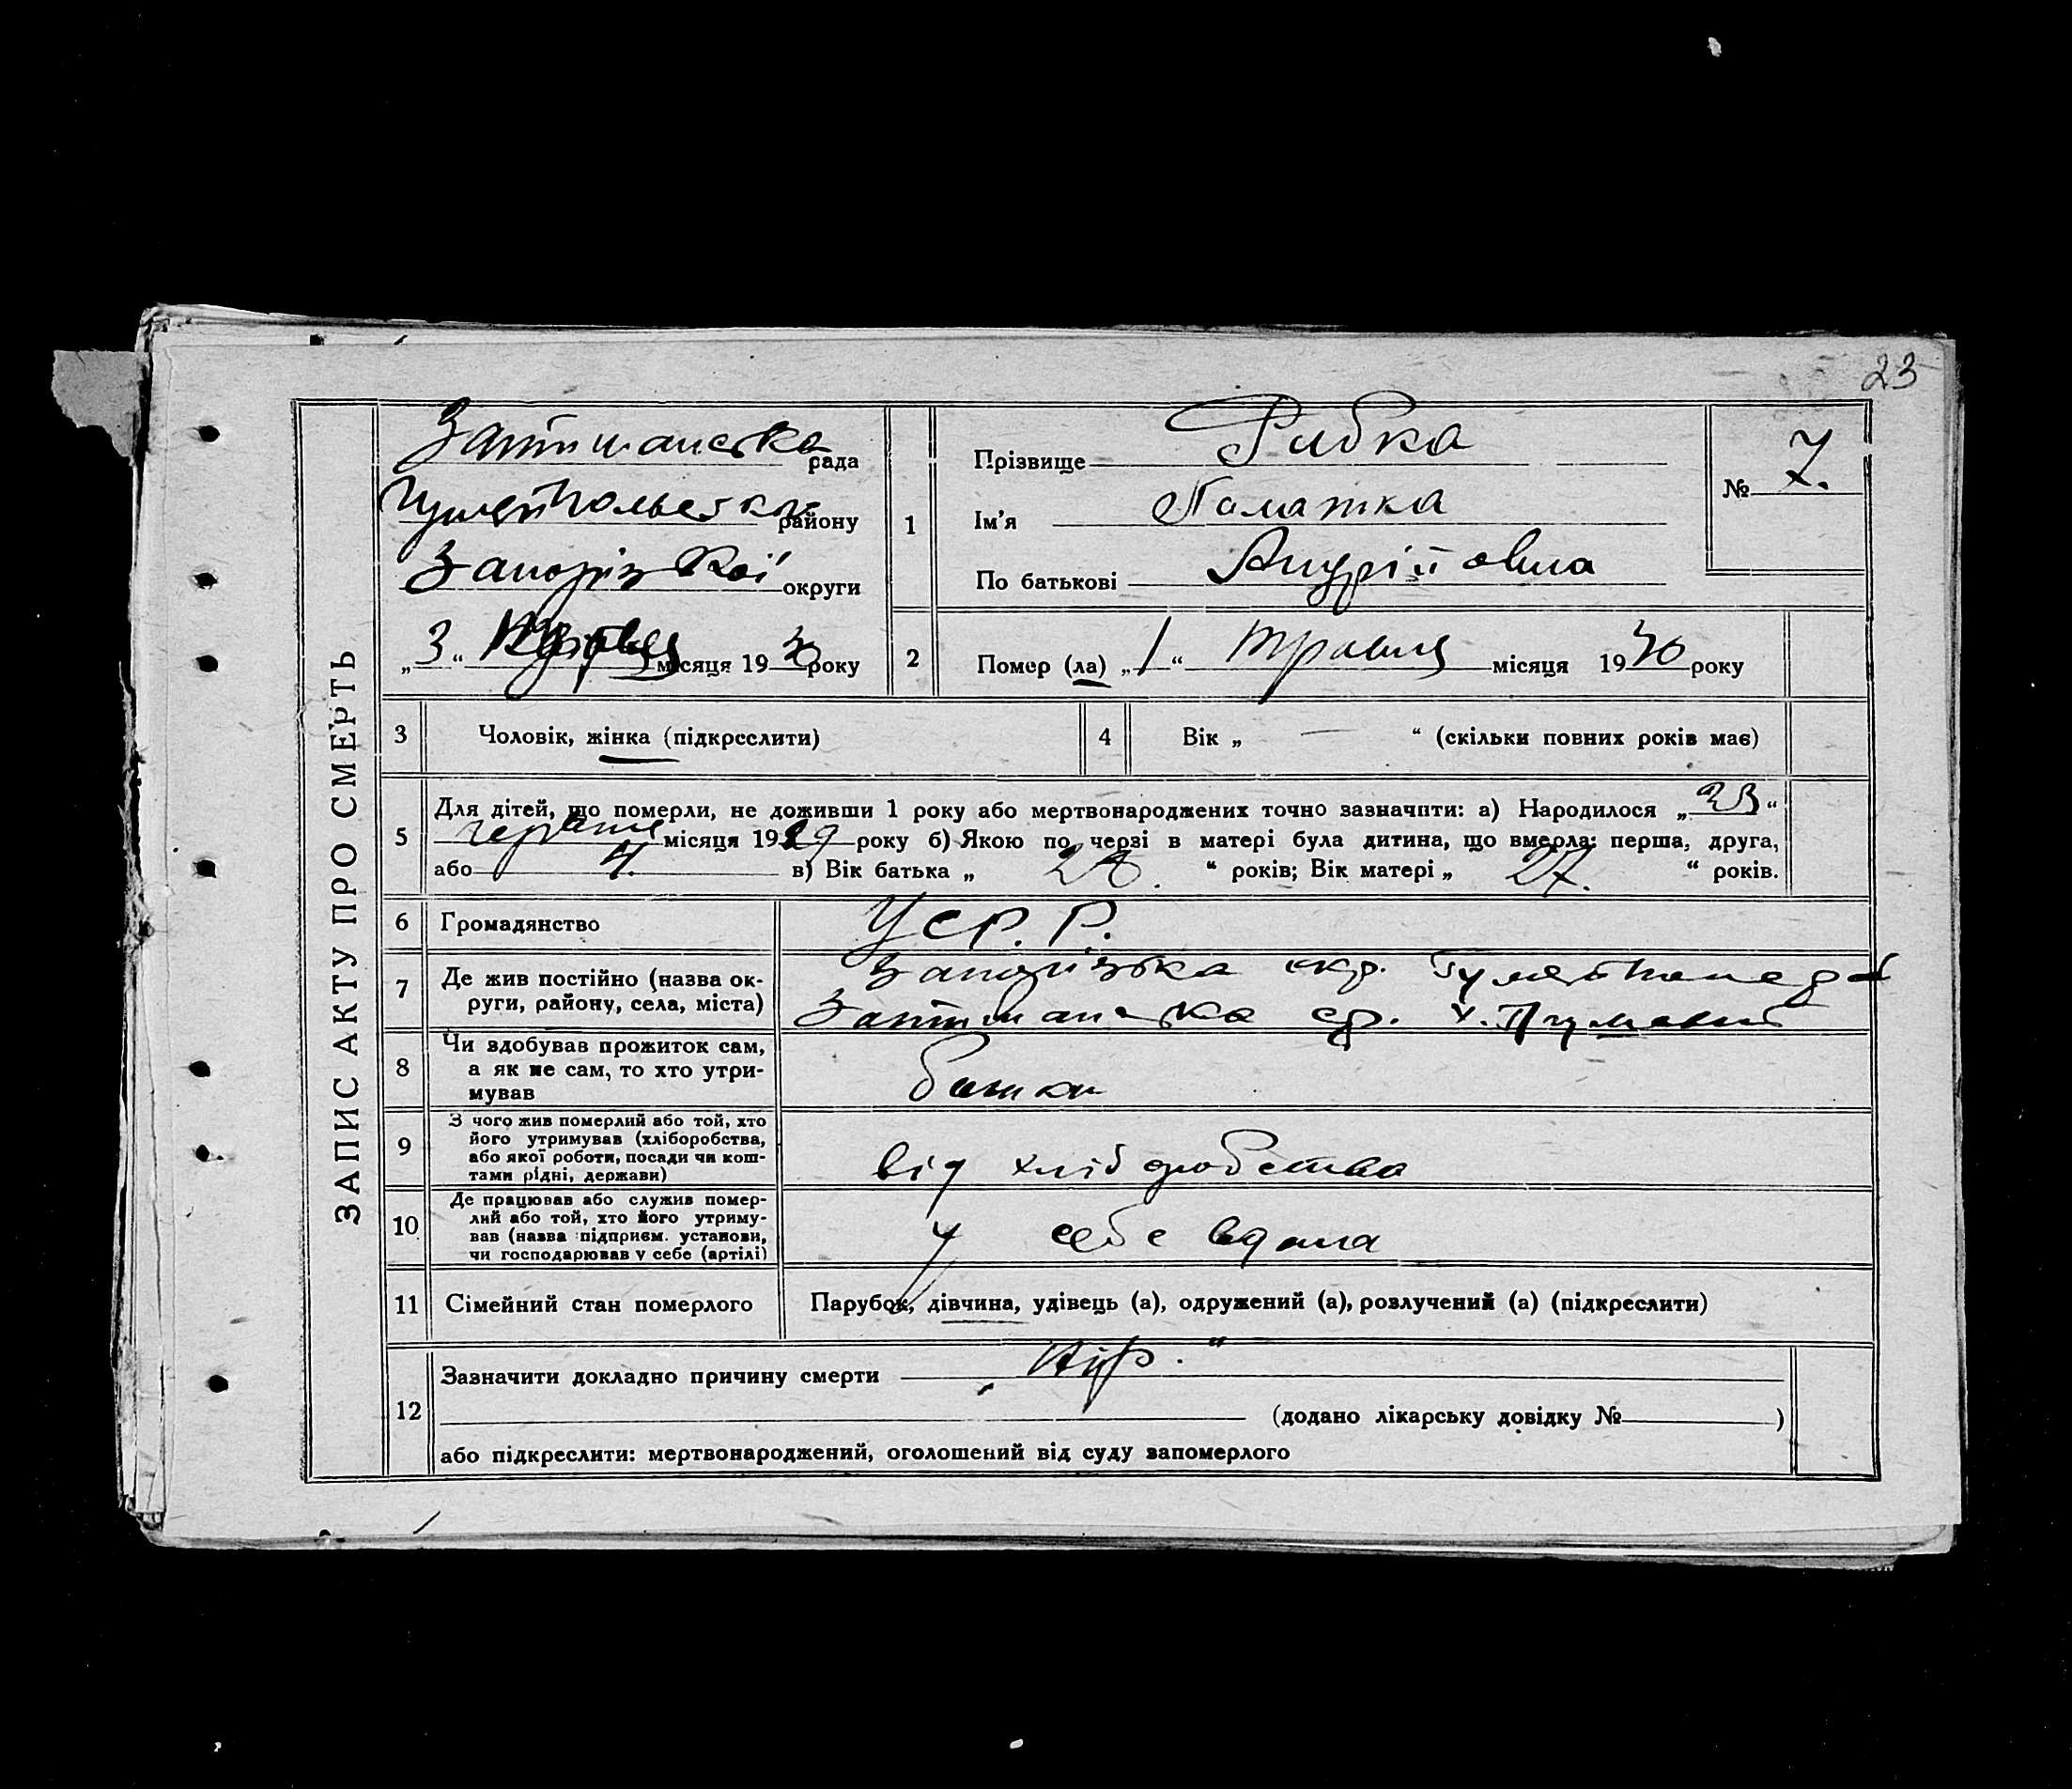 23
ЗАПИС АКТУ ПРО СМЕРТЬ
Затишанська рада
району
Запорізької округи
„3“ місяця 1930 року
1
Прізвище Рибка
Ім'я
По батькові Андрійовна
№ 7.
2
Помер (ла) „1“ травня місяця 1930 року
3
Чоловік, жінка (підкреслити)
4
Вік „ — “ (скільки повних років має)
5
Для дітей, що померли, не доживши 1 року або мертвонароджених точно зазначити: а) Народилося „23“
червня місяця 1929 року б) Якою по черзі в матері була дитина, що вмерла: перша, друга,
або 4. в) Вік батька „28.“ років; Вік матері „27.“ років.
6
Громадянство
УСР.Р.
7
Де жив постійно (назва ок-
руги, району, села, міста)
Запорізька окр.
Затишанська ср. х.
8
Чи здобував прожиток сам,
а як не сам, то хто утри-
мував
батьки
9
З чого жив померлий або той, хто
його утримував (хліборобства,
або якої роботи, посади чи кош-
тами рідні, держави)
від хліборобства
10
Де працював або служив помер-
лий або той, хто його утриму-
вав (назва підприєм. установи,
чи господарював у себе (артілі)
у себе вдома
11
Сімейний стан померлого
Парубок, дівчина, удівець (а), одружений (а), розлучений (а) (підкреслити)
12
Зазначити докладно причину смерти „Кір.“
(додано лікарську довідку № )
або підкреслити: мертвонароджений, оголошений від суду запомерлого